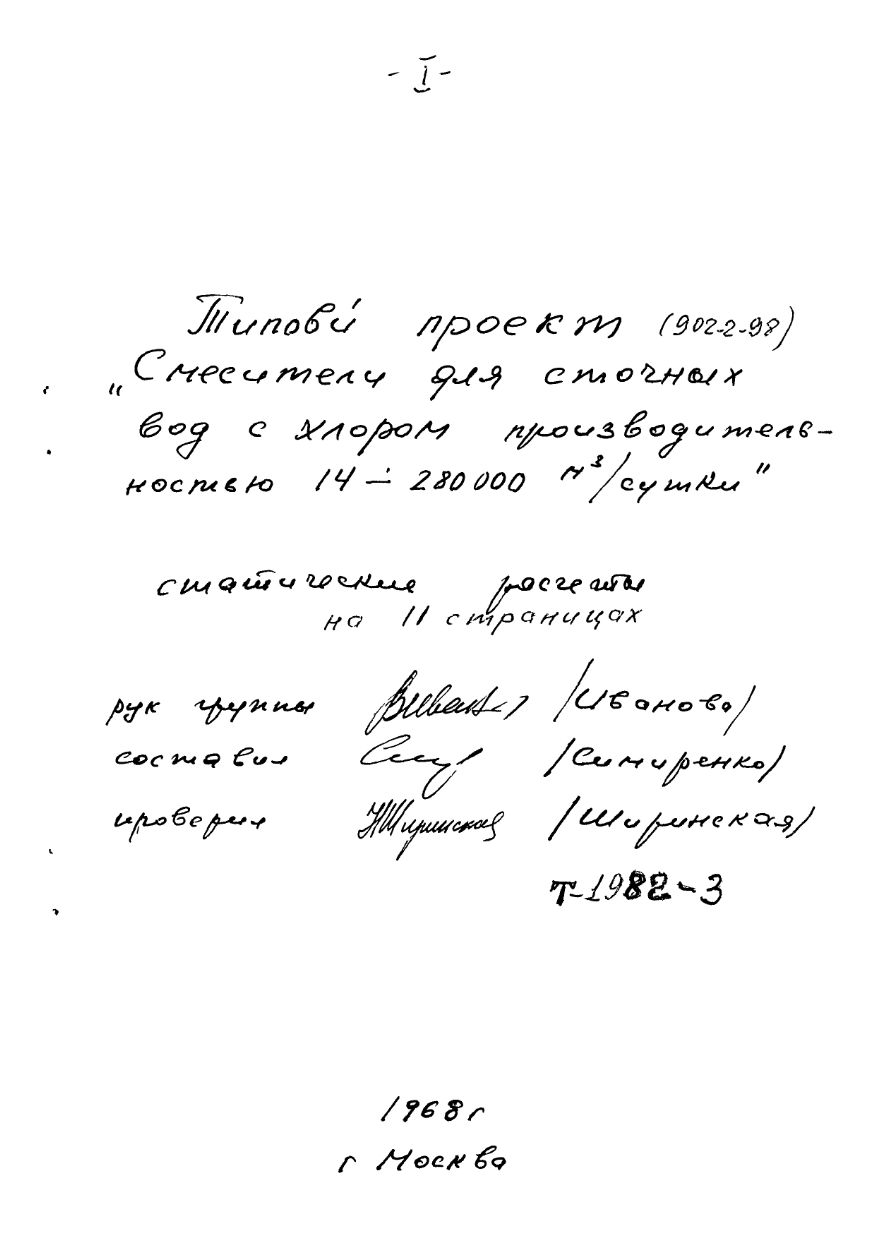 - I -
Типовй проект (902-2-98)
„Смесители для сточных
вод с хлором производитель-
ностью 14 ÷ 280000 м³/сутки"
статические расчеты
на 11 страницах
рук группы /Иванова/
составил /Симиренко/
проверил НШиринская /Ширинская/
Т-1982-3
1968 г
г Москва